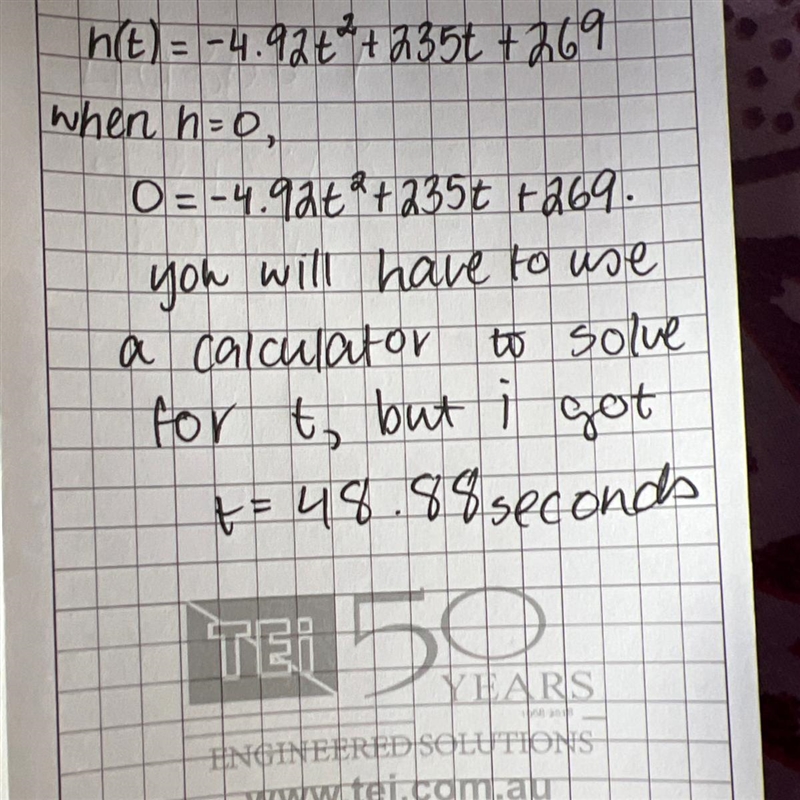 h(t) = -4.92t² + 235t + 269
when h=0,
0 = -4.92t² + 235t + 269.
you will have to use
a calculator to solve
for t, but i got
t = 48.88seconds
TEi 50
YEARS
ENGINEERED SOLUTIONS
www.tei.com.au